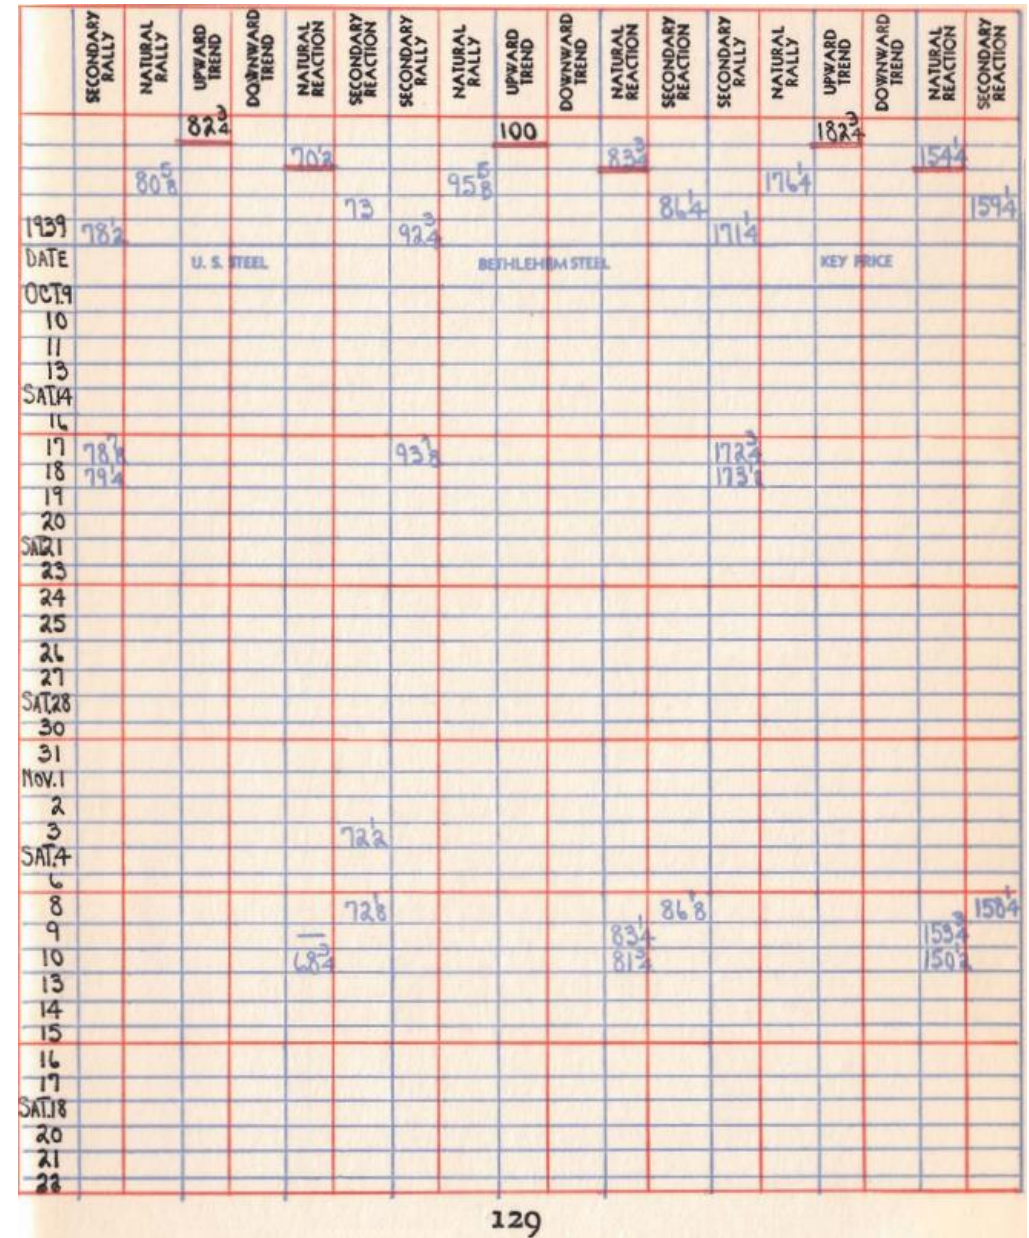 SECONDARY RALLY NATURAL RALLY UPWARD TREND DOWNWARD TREND NATURAL REACTION SECONDARY REACTION SECONDARY RALLY NATURAL RALLY UPWARD TREND DOWNWARD TREND NATURAL REACTION SECONDARY REACTION SECONDARY RALLY NATURAL RALLY UPWARD TREND DOWNWARD TREND NATURAL REACTION SECONDARY REACTION
82 3/4 100 182 3/4
70 1/2 83 3/4 154 1/4
80 5/8 95 5/8 176 1/4
73 86 1/4 159 1/4
1939 78 1/2 92 3/4 171 1/4
DATE U. S. STEEL BETHLEHEM STEEL KEY PRICE
OCT.9
10
11
13
SAT.14
16
17 78 7/8 93 7/8 172 3/4
18 79 1/4 173 1/2
19
20
SAT.21
23
24
25
26
27
SAT.28
30
31
NOV.1
2
3 72 1/2
SAT.4
6
8 72 1/8 86 1/8 158 1/4
9 — 83 1/4 153 3/4
10 68 3/4 81 3/4 150 1/2
13
14
15
16
17
SAT.18
20
21
22
129